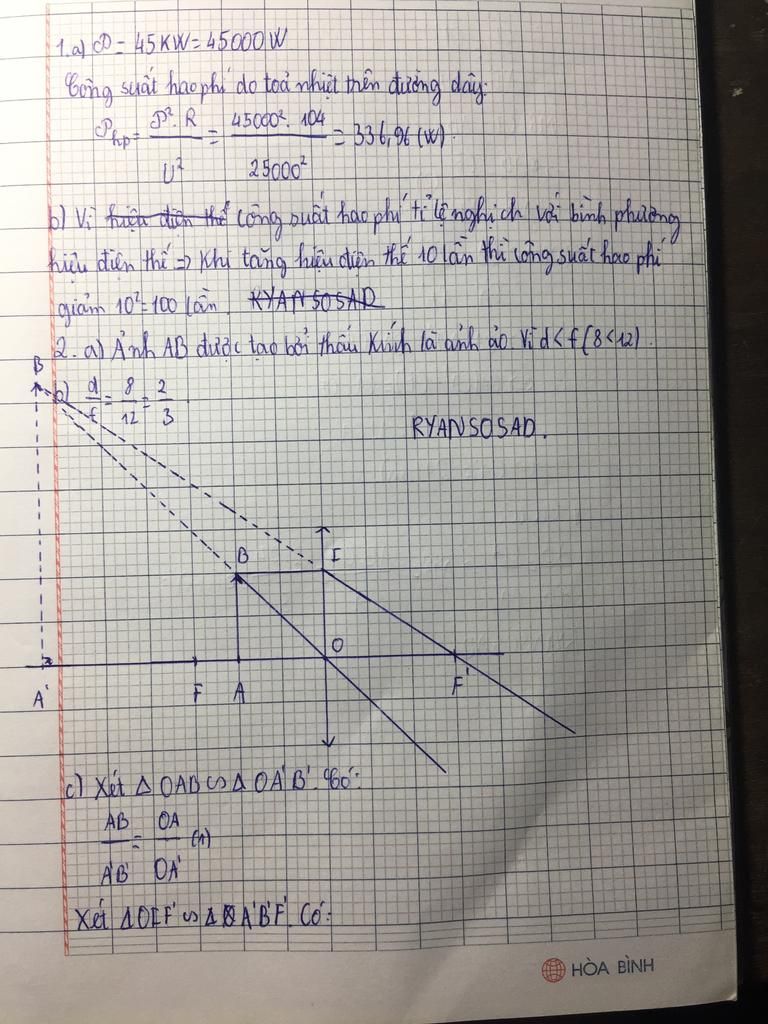 1.a) P = 45KW = 45000W
Công suất hao phí do toả nhiệt trên đường dây:
Php = P². R / U² = 45000². 104 / 25000² = 336,96 (W).
b) Vì hiệu điện thế công suất hao phí tỉ lệ nghịch với bình phương
hiệu điện thế => Khi tăng hiệu điện thế 10 lần thì công suất hao phí
giảm 10²=100 lần. KYANSOSAD
2. a) Ảnh AB được tạo bởi thấu kính là ảnh ảo vì d<f (8<12).
B'
b) d/f = 8/12 = 2/3
RYANSOSAD.
B I
O
A' F A F'
c) Xét Δ OAB ∽ Δ OA'B'. Có:
AB / A'B' = OA / OA' (1)
Xét ΔOIF' ∽ Δ A'B'F'. Có:
HÒA BÌNH